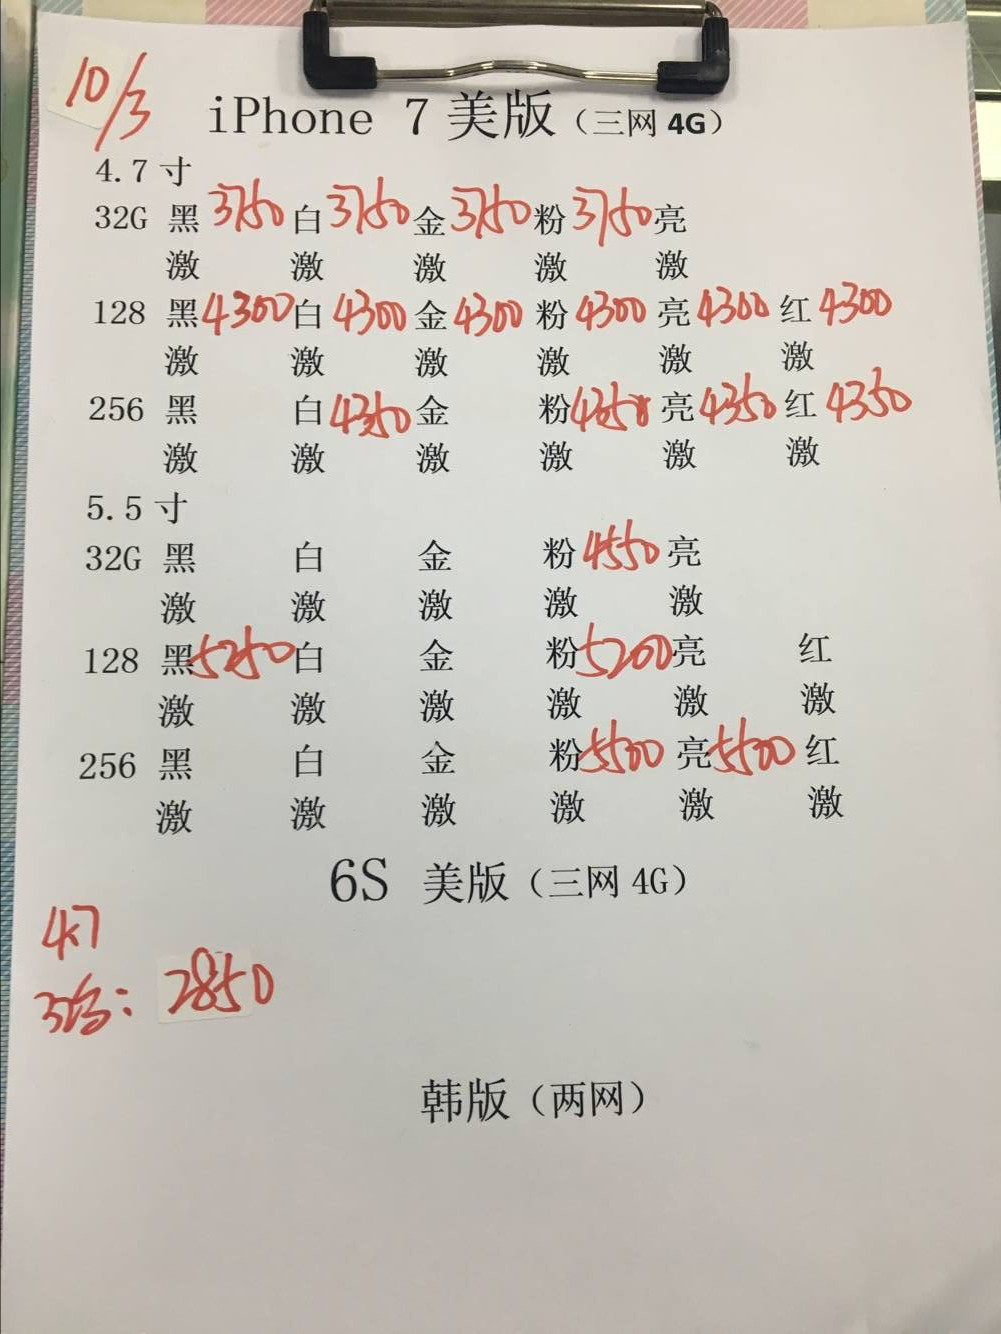 10/3
iPhone 7 美版（三网 4G）
4.7 寸
32G 黑 3750 白 3750 金 3750 粉 3750 亮
激 激 激 激 激
128 黑 4300 白 4300 金 4300 粉 4300 亮 4300 红 4300
激 激 激 激 激 激
256 黑 白 4350 金 粉 4350 亮 4350 红 4350
激 激 激 激 激 激
5.5 寸
32G 黑 白 金 粉 4550 亮
激 激 激 激 激
128 黑 5250 白 金 粉 5200 亮 红
激 激 激 激 激 激
256 黑 白 金 粉 5500 亮 5500 红
激 激 激 激 激 激
6S 美版（三网 4G）
4.7
: 2850
韩版（两网）